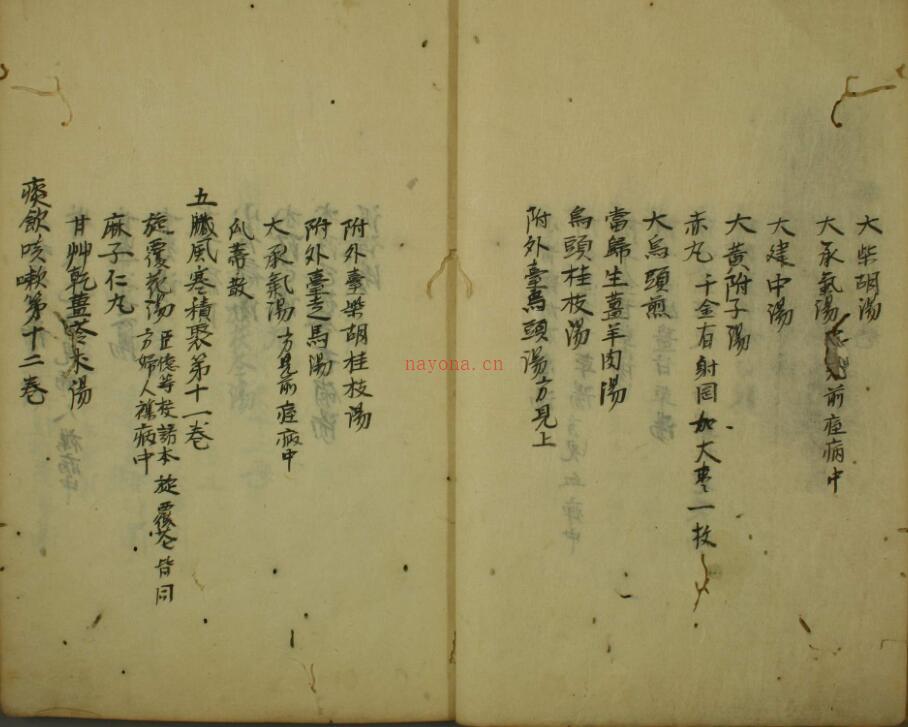 大柴胡湯
大承氣湯 方見前痙病中
大建中湯
大黃附子湯
赤丸 千金有射罔加大棗一枚
大烏頭煎
當歸生薑羊肉湯
烏頭桂枝湯
附外臺烏頭湯方見上
附外臺柴胡桂枝湯
附外臺走馬湯
大承氣湯方見前痙病中
瓜蒂散
五臟風寒積聚第十一卷
旋覆花湯 臣億等校諸本旋覆花皆同
方婦人雜病中
麻子仁丸
甘艸乾薑苓朮湯
痰飲咳嗽第十二卷
nayona.cn